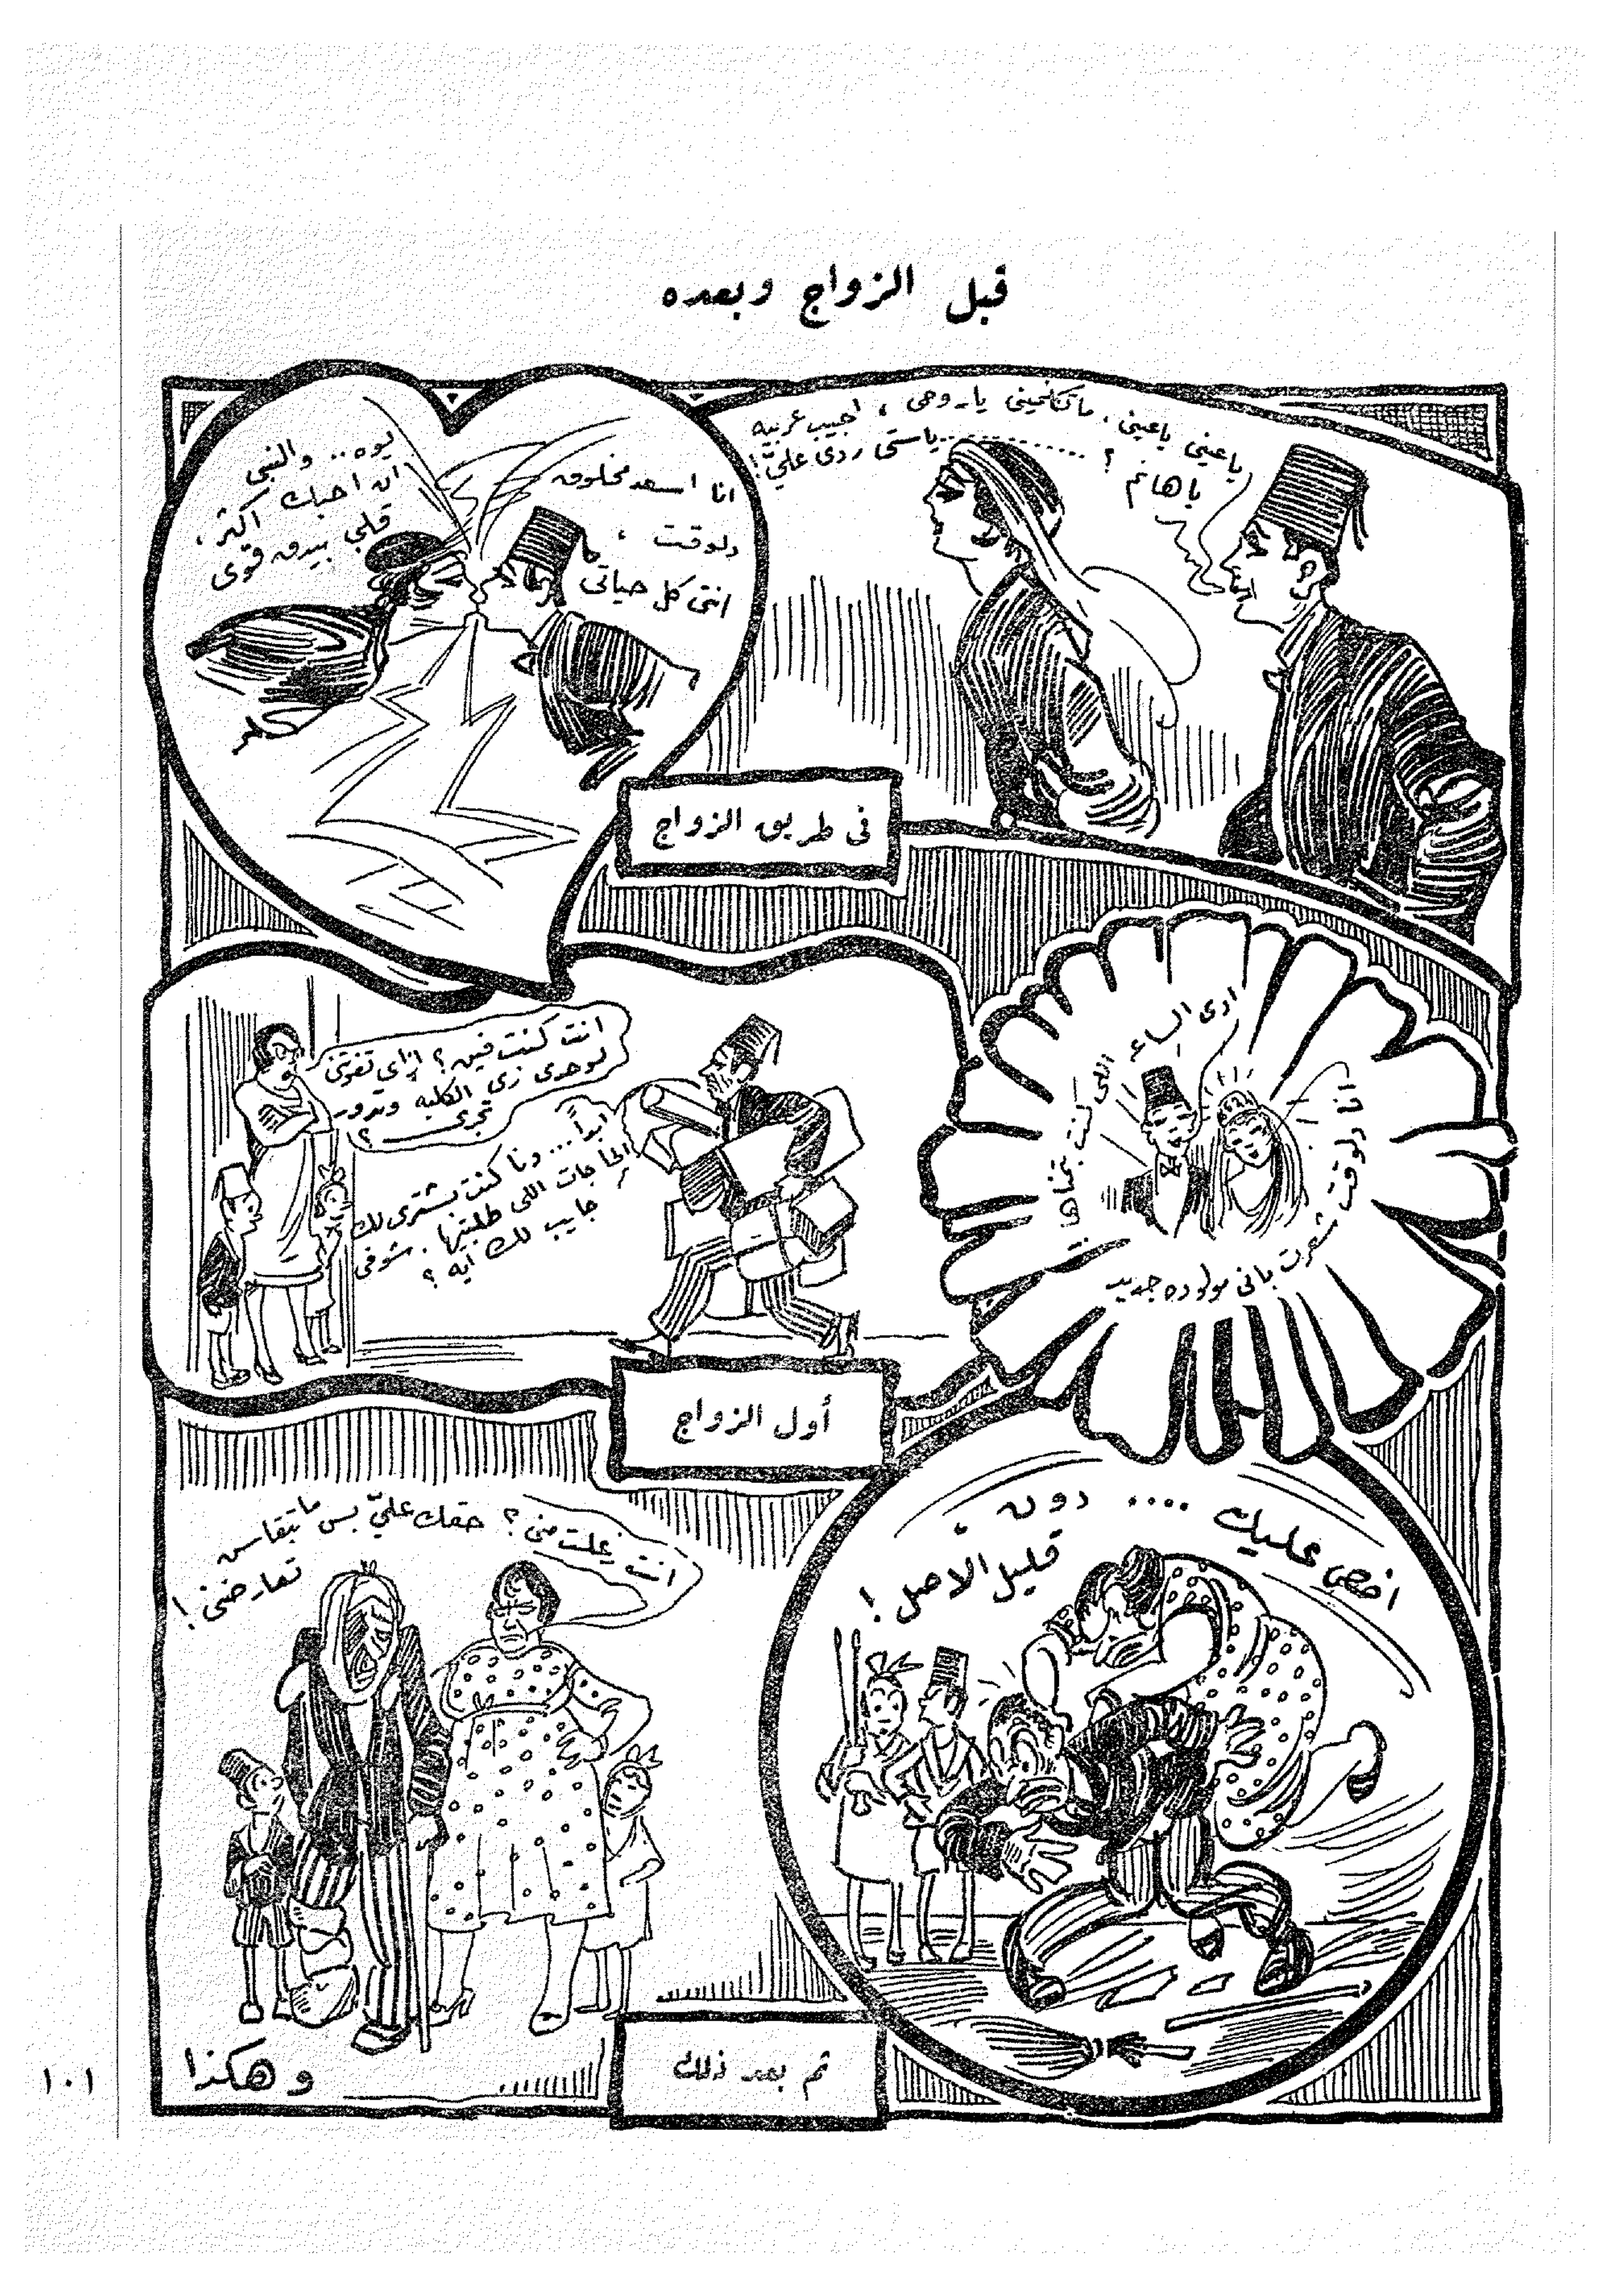 قبل الزواج وبعده
ياعيني ياعيني . ماتكلميني ياروحي ، اجيب عربيه
ياهانم ؟ .............. ياستي ردي عليّ !
انا اسعد مخلوق
دلوقت ،
انتي كل حياتي
يوه .. والنبي
ان احبك اكثر ،
قلبي بيدق قوي
في طريق الزواج
ادي الساعه اللي كنت بتمناها ..
انا دلوقت شعرت باني مولوده جديد
انت كنت فين ؟ ازاي تفوتني
لوحدي زي الكلبه وتدور
تجري ؟
ابداً ... دنا كنت بشتري لك
الحاجات اللي طلبتيها . شوفي
جايب لك ايه ؟
أول الزواج
اخص عليك .... دون .
قليل الاصل !
انت زعلت مني ؟ حقك عليّ بس ما تبقاس
تعارضني !
ثم بعد ذلك
وهكذا
١٠١